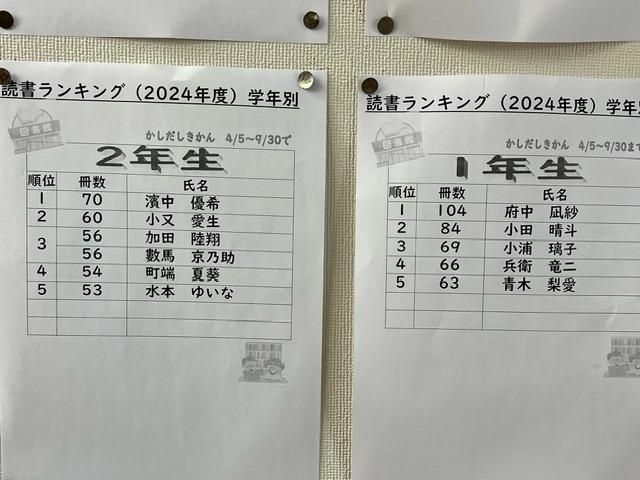 読書ランキング（2024年度）学年別
図書館
かしだしきかん　4/5～9/30で
2年生
順位　冊数　氏名
1　70　濱中　優希
2　60　小又　愛生
3　56　加田　陸翔
56　數馬　京乃助
4　54　町端　夏葵
5　53　水本　ゆいな
読書ランキング（2024年度）学年別
図書館
かしだしきかん　4/5～9/30まで
1年生
順位　冊数　氏名
1　104　府中　凪紗
2　84　小田　晴斗
3　69　小浦　璃子
4　66　兵衛　竜二
5　63　青木　梨愛